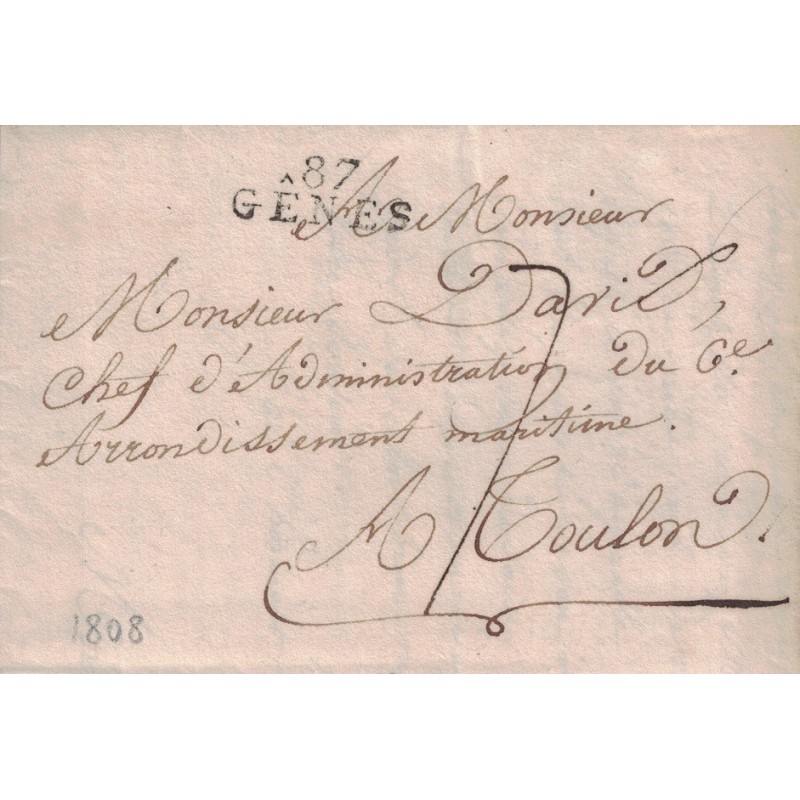 87
GÊNES
A Monsieur
Monsieur David,
Chef d'Administration du 6e.
Arrondissement maritime.
A Toulon.
7
1808